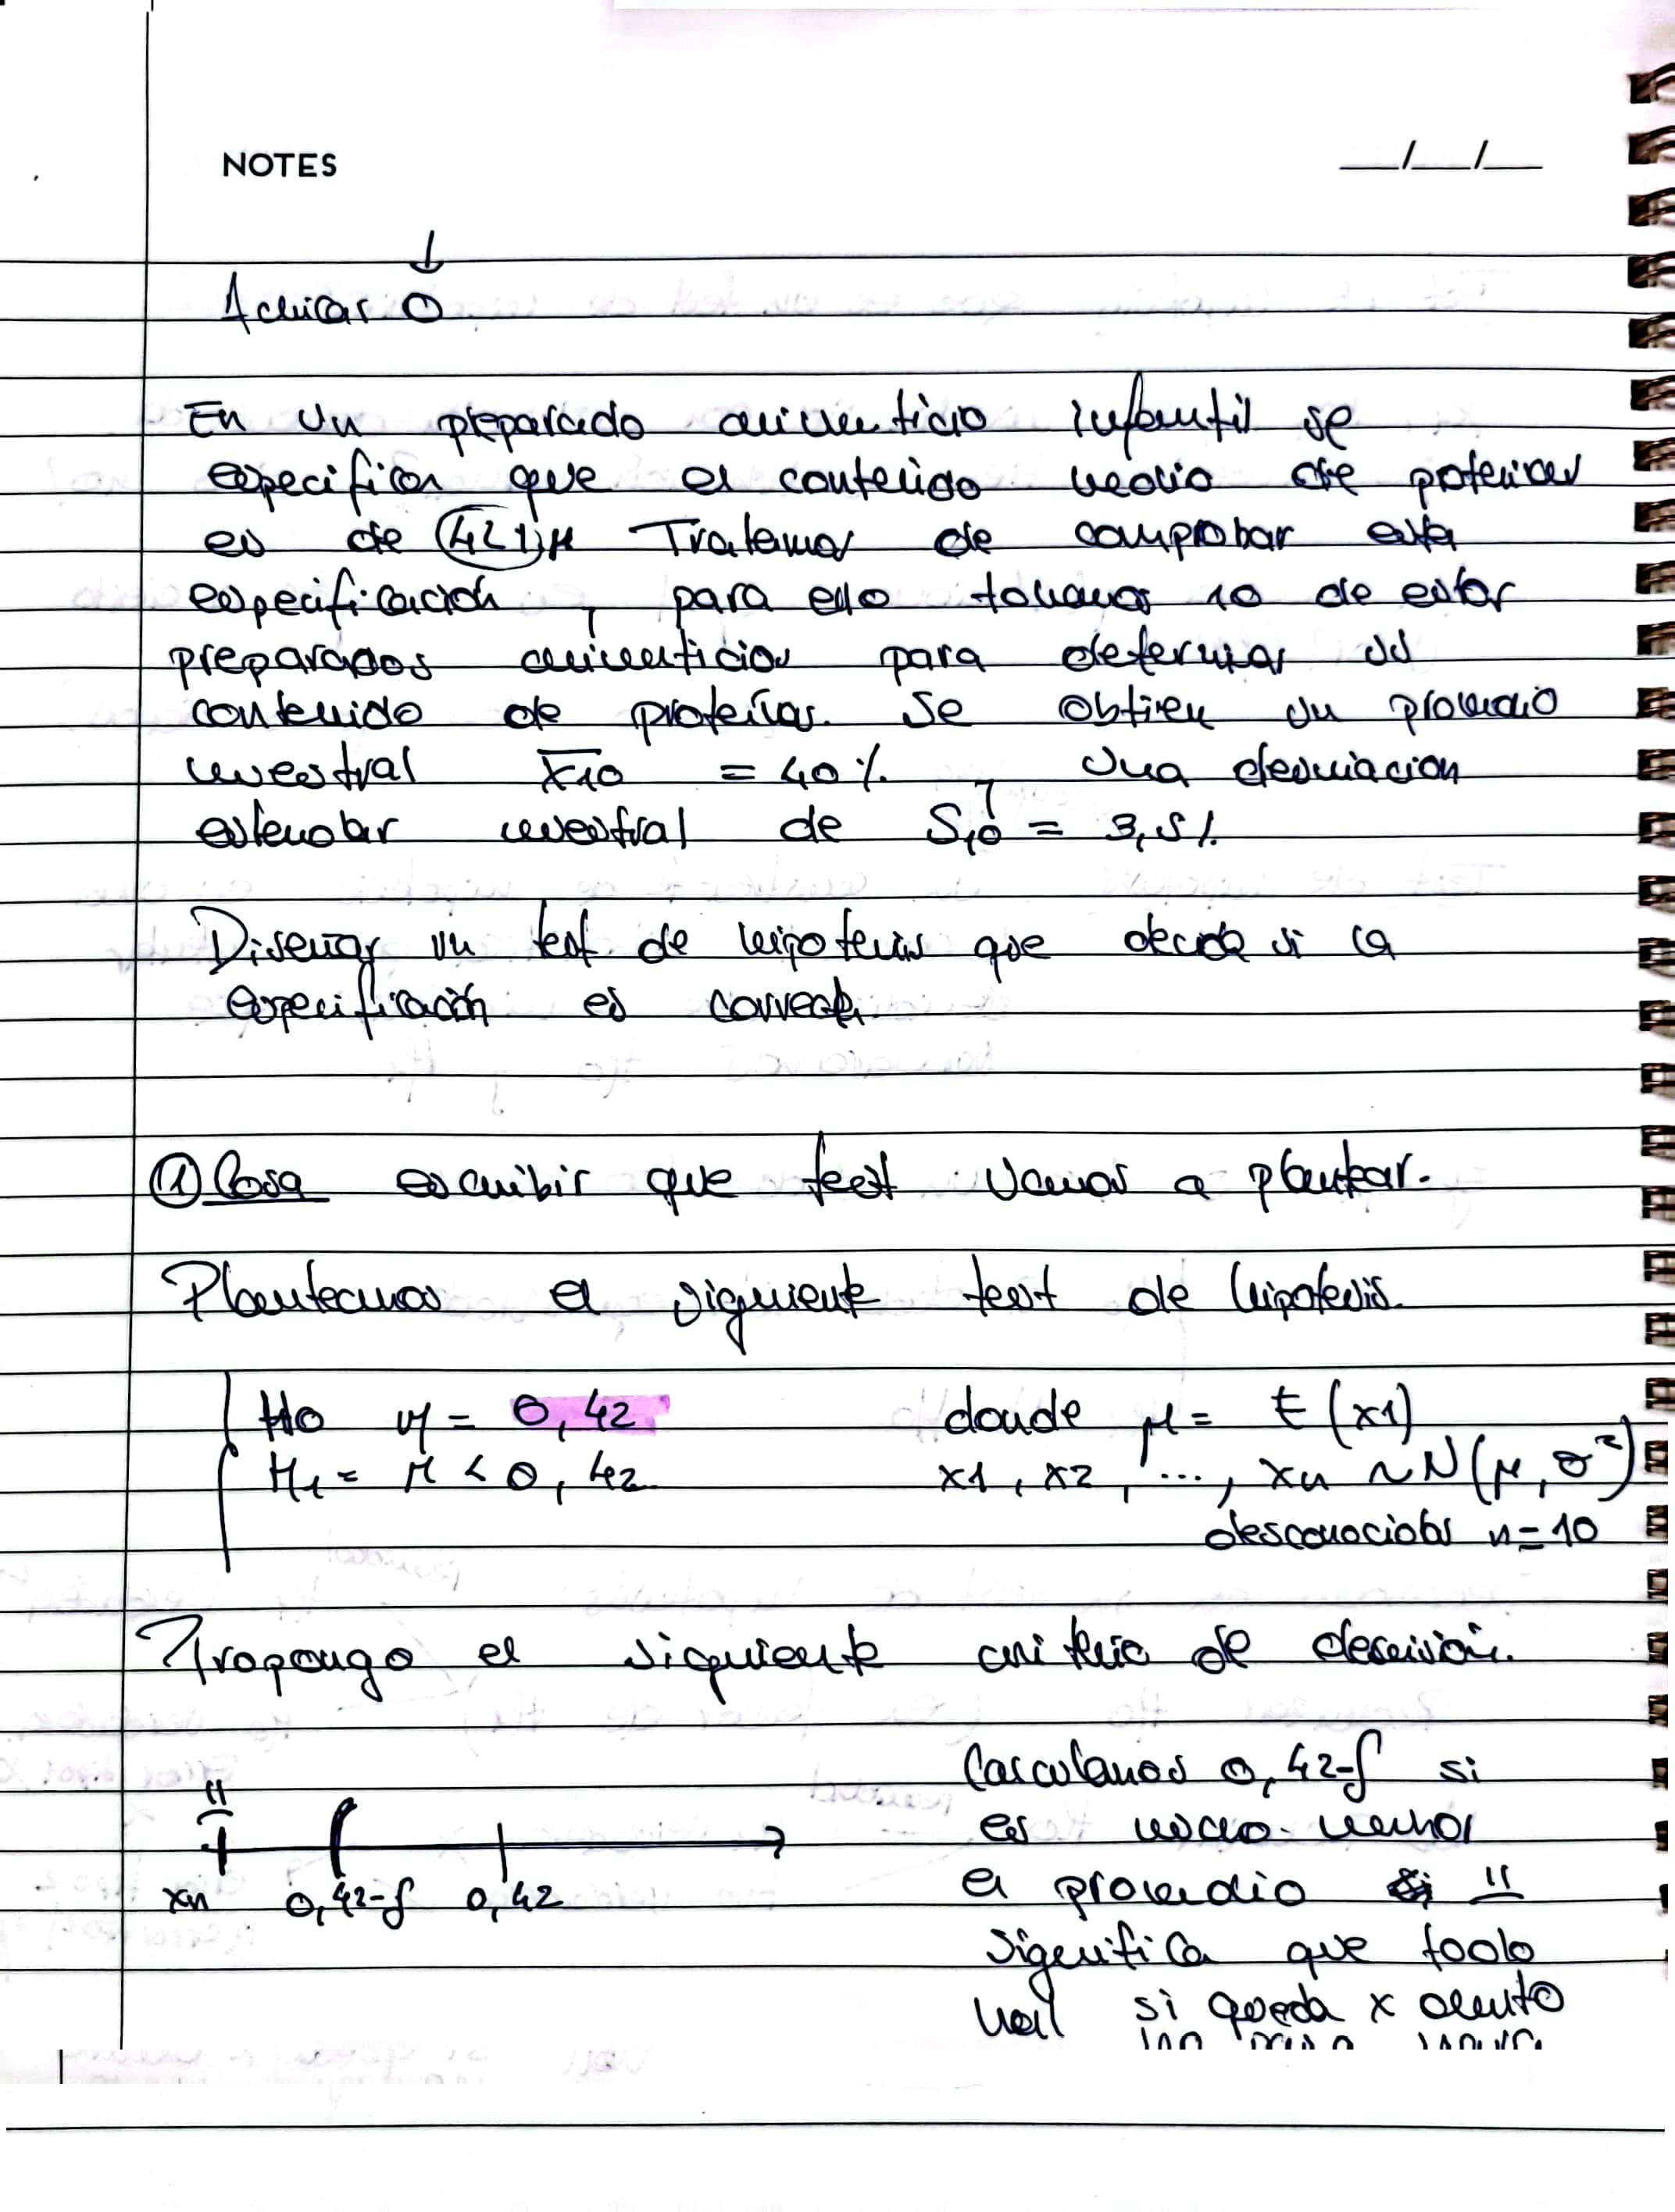 NOTES
__/__/__
Achicar O
En un preparado alimenticio infantil se
especifica que el contenido medio de proteinas
es de 42% μ Tratamos de comprobar esta
especificación, para ello tomamos 10 de estos
preparados alimenticios para determinar su
contenido de proteínas. Se obtien un promedio
muestral x10 = 40% y una desviacion
estandar muestral de S10 = 3,5%
Diseñar un test de hipotesis que decida si la
especificación es correcta.
① Cosa escribir que test vamos a plantear.
Planteamos el siguiente test de hipotesis.
Ho μ = 0,42 donde μ = E(x1)
H1 = μ < 0,42 x1, x2, ..., xn ~ N(μ, σ²)
desconocidos n=10
Propongo el siguiente criterio de decisión.
Calculamos 0,42-δ si
es mucho menor
el promedio si =
significa que todo
mal si queda x dento
xn 0,42-δ 0,42